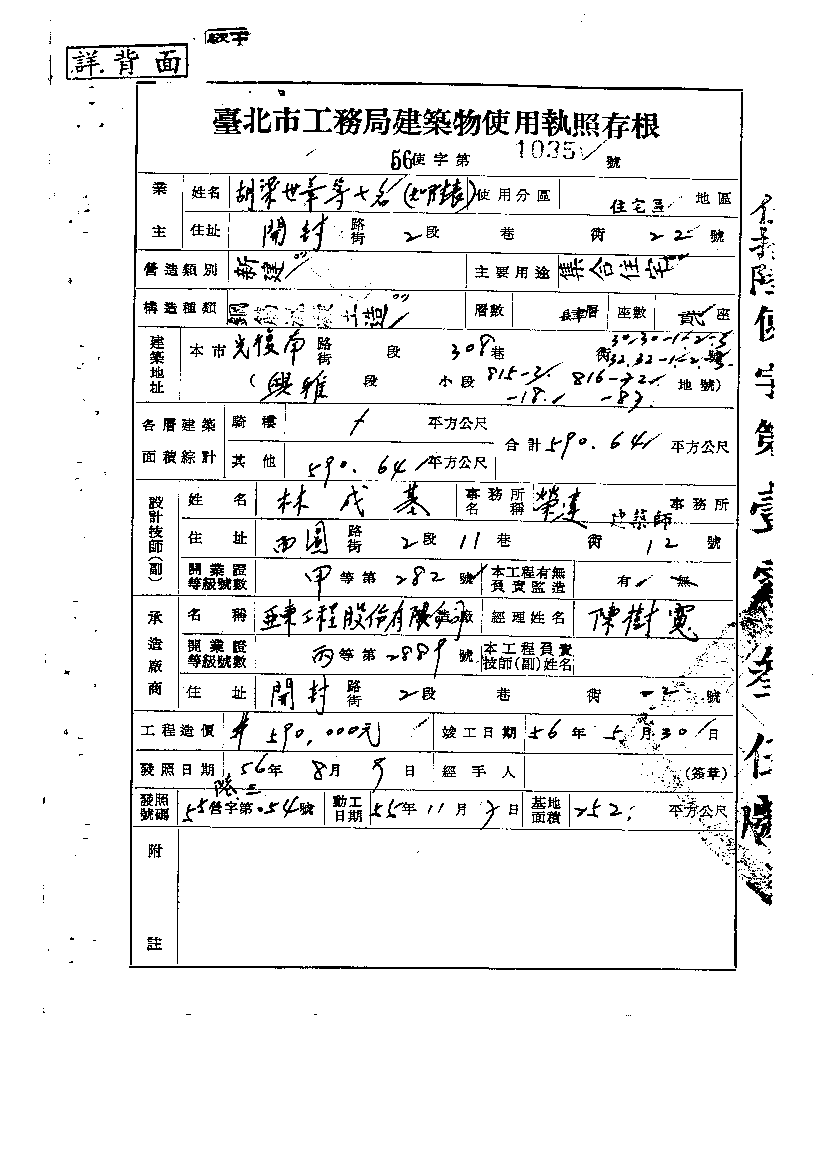 詳背面
臺北市工務局建築物使用執照存根
56使字第 1035 號
業主 姓名 胡梁世華等七名(如附表) 使用分區 住宅區 地區
住址 開封 路街 2段 巷 街 22 號
營造類別 新建 主要用途 集合住宅
構造種類 鋼筋混凝土造 層數 層 座數 貳 座
建築地址 本市 光復南 路街 段 308巷 街 30.30-1.2.3 號
32.32-1.2.3
(興雅 段 小段 815-3 816-72 地號)
-18. -83.
各層建築面積綜計 騎樓 平方公尺 合計 590.64 平方公尺
其他 590.64 平方公尺
設計技師(副) 姓名 林成基 事務所名稱 榮達建築師 事務所
住址 西園 路街 2段 11巷 街 12 號
開業證等級號數 甲等第 282 號 本工程有無負責監造 有 無
承造廠商 名稱 亜東工程股份有限公司 造廠 經理姓名 陳樹寬
開業證等級號數 丙等第 2889 號 本工程負責技師(副)姓名
住址 開封 路街 2段 巷 街 號
工程造價 590,000元 竣工日期 56年 5月 30日
發照日期 56年 8月 日 經手人 (簽章)
發照號碼 55營字第 054號 動工日期 55年 11月 日 基地面積 252. 平方公尺
附註
使字第壹